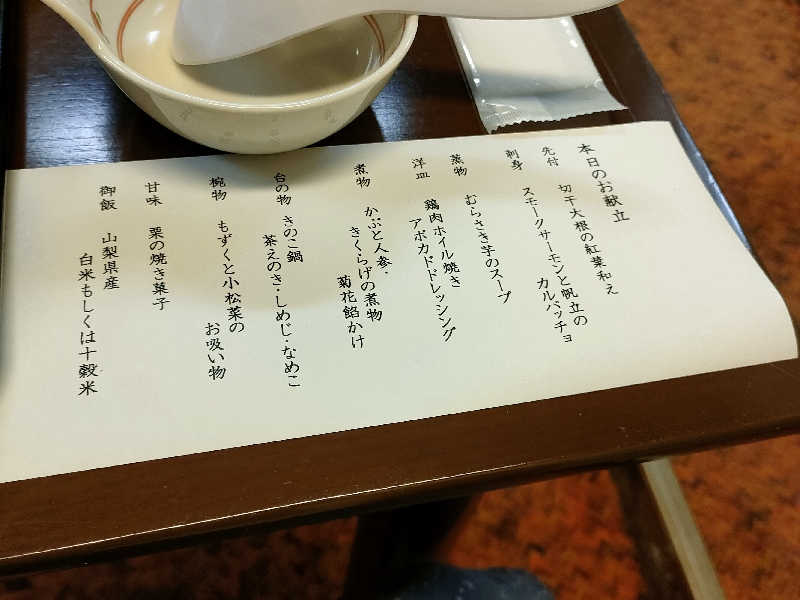 本日のお献立
先付 切干大根の紅葉和え
刺身 スモークサーモンと帆立の
カルパッチョ
蒸物 むらさき芋のスープ
洋皿 鶏肉ホイル焼き
アボカドドレッシング
煮物 かぶと人参、
きくらげの煮物
菊花餡かけ
台の物 きのこ鍋
茶えのき・しめじ・なめこ
椀物 もずくと小松菜の
お吸い物
甘味 栗の焼き菓子
御飯 山梨県産
白米もしくは十穀米